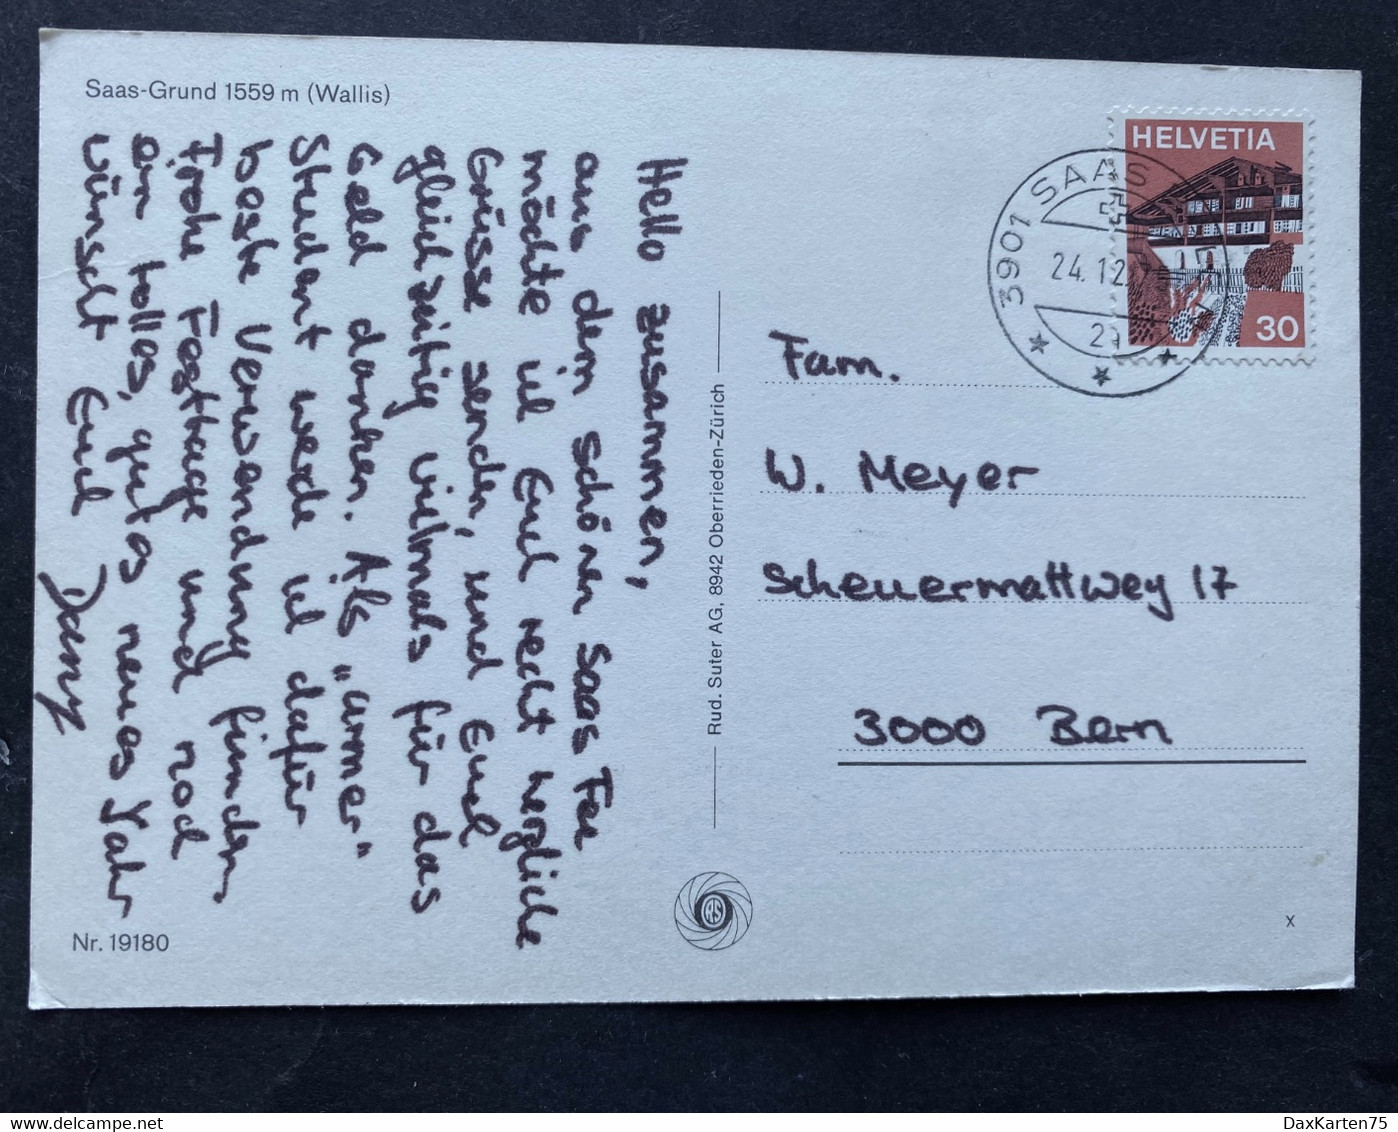 Saas-Grund 1559 m (Wallis)
Hello zusammen,
aus dem schönen Saas Fee
möchte ich Euch recht herzliche
Grüsse senden, und Euch
gleichzeitig vielmals für das
Geld danken. Als "armer"
Student werde ich dafür
beste Verwendung finden.
Frohe Festtage und noch
ein tolles, gutes neues Jahr
wünscht Euch
Dany
Nr. 19180
Rud. Suter AG, 8942 Oberrieden-Zürich
RS
HELVETIA
30
3901 SAAS
24.12.
Fam.
W. Meyer
Scheuermattweg 17
3000 Bern
x
DaxKarten75